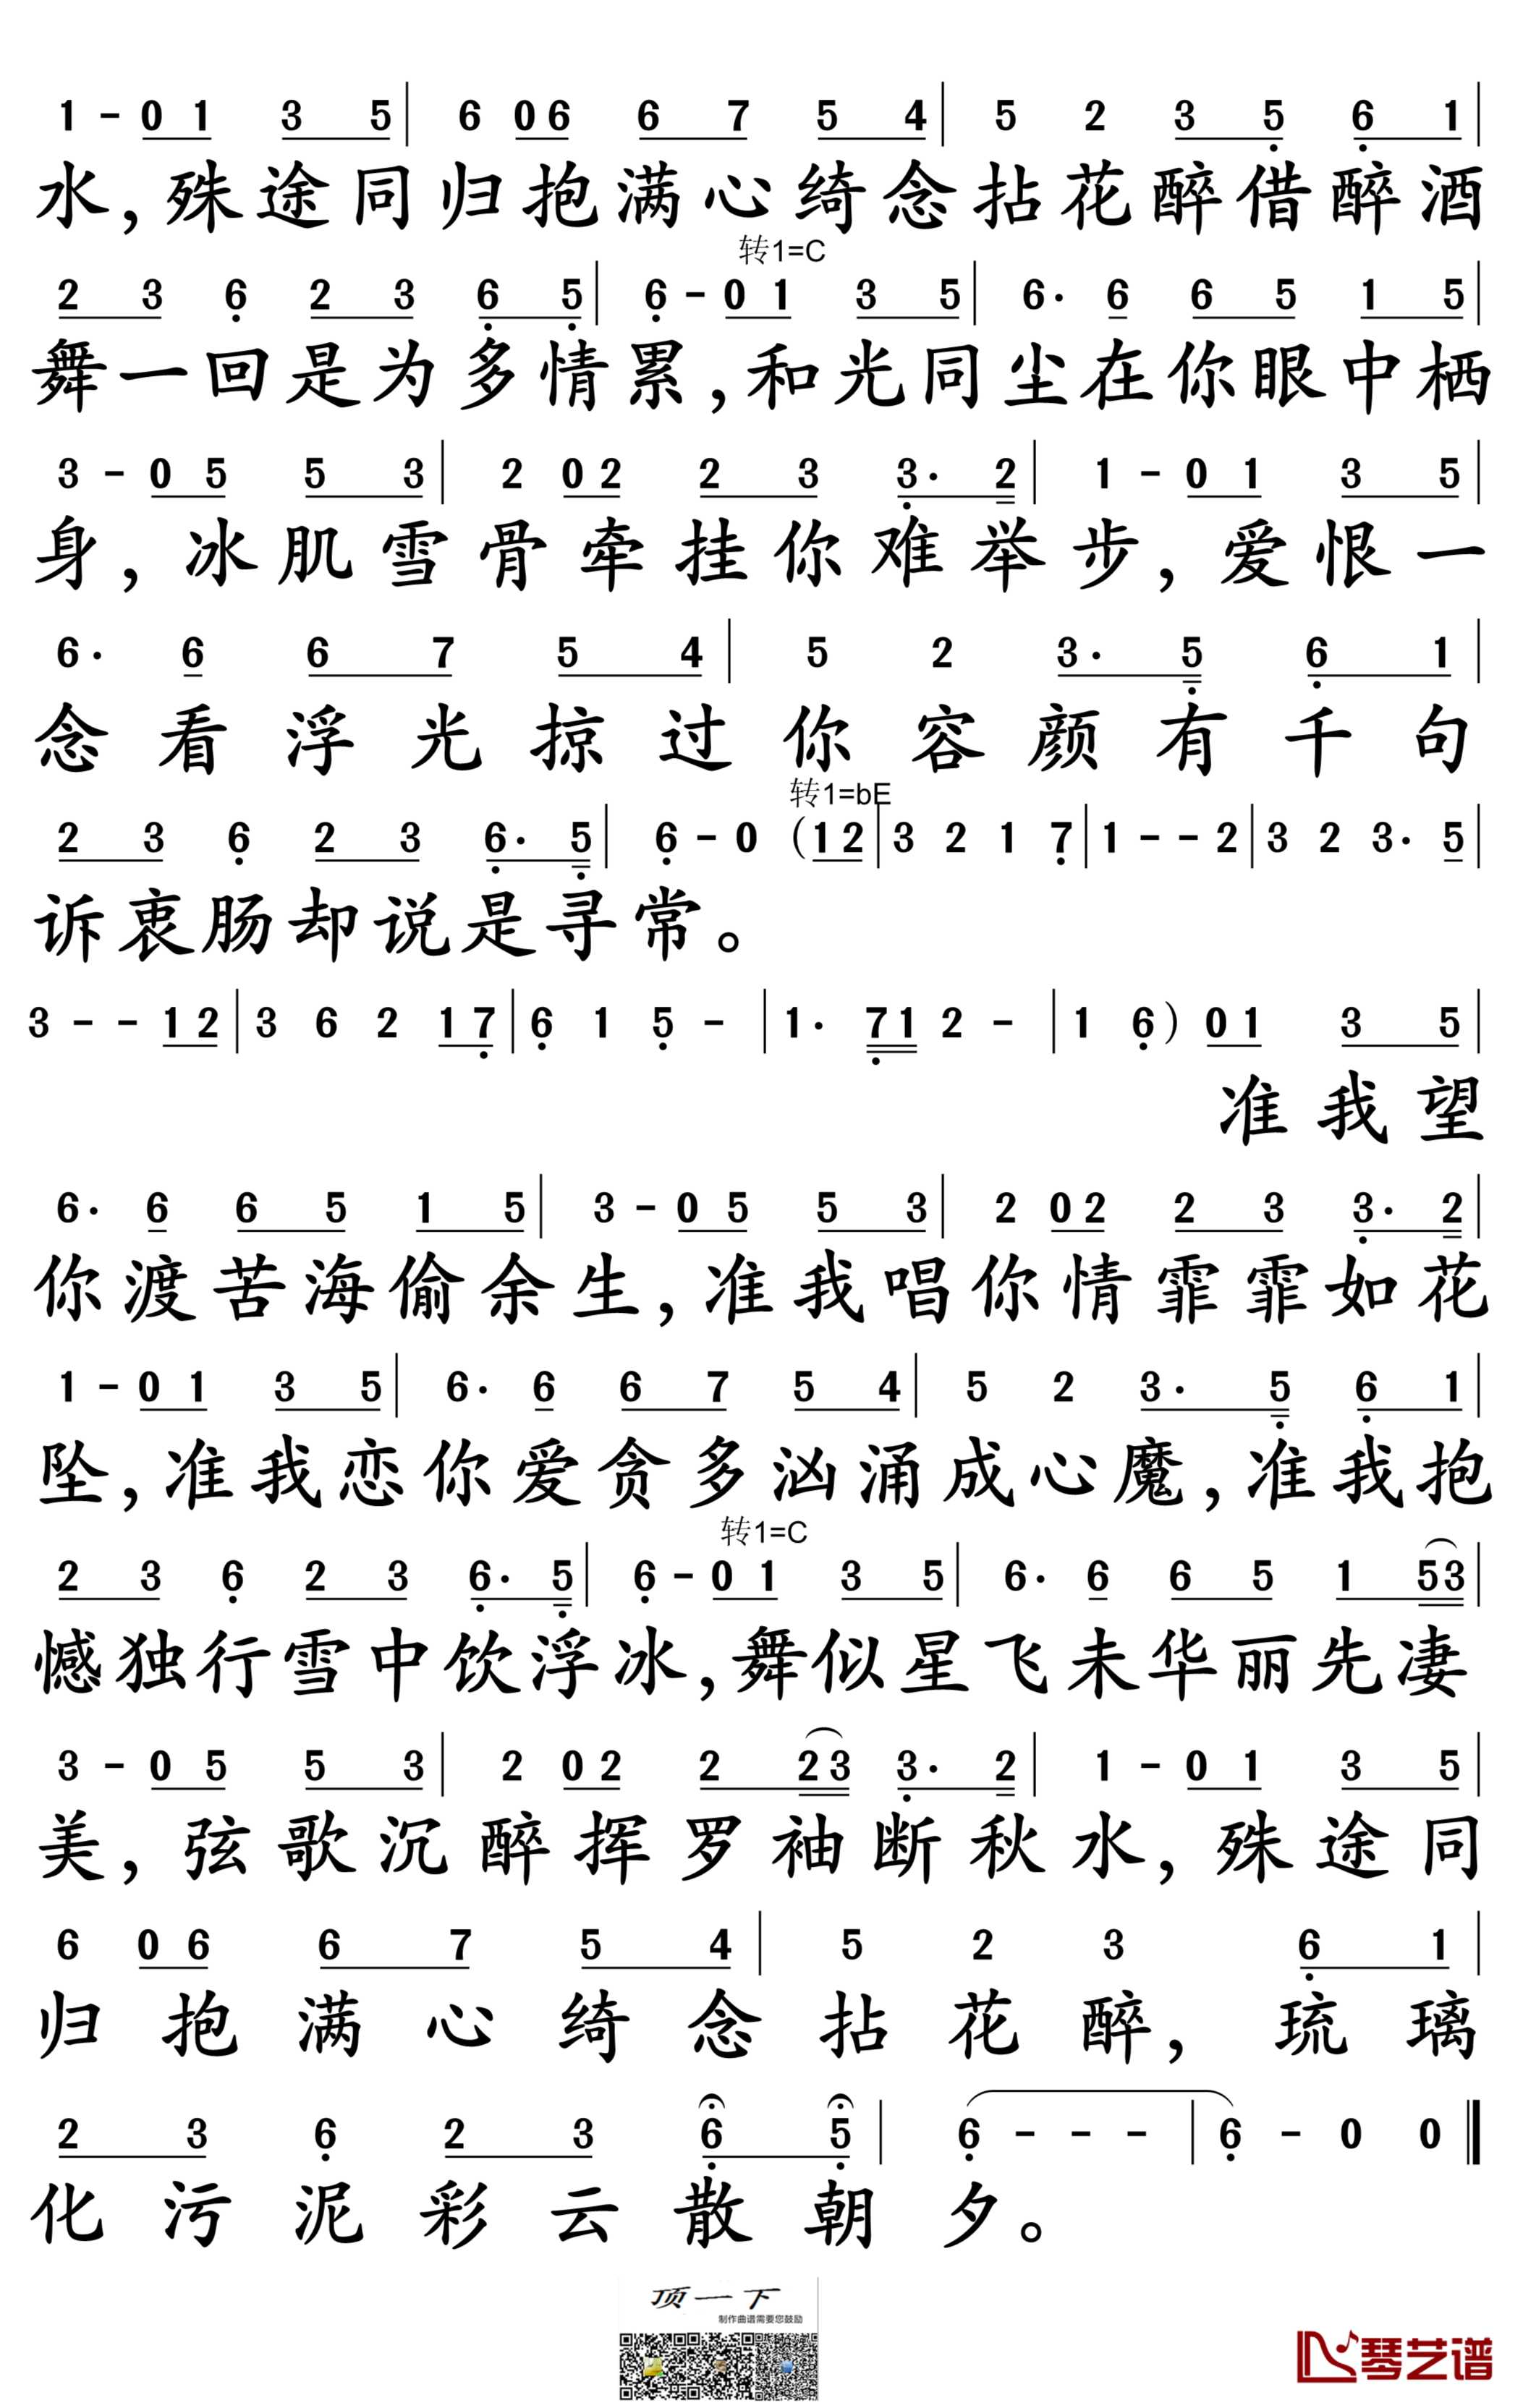 1 - 0 1 3 5 | 6 0 6 6 7 5 4 | 5 2 3 5 6 1 |
水，殊途同归抱满心绮念拈花醉借醉酒
转1=C
2 3 6 2 3 6 5 | 6 - 0 1 3 5 | 6· 6 6 5 1 5 |
舞一回是为多情累，和光同尘在你眼中栖
3 - 0 5 5 3 | 2 0 2 2 3 3· 2 | 1 - 0 1 3 5 |
身，冰肌雪骨牵挂你难举步，爱恨一
6· 6 6 7 5 4 | 5 2 3· 5 6 1 |
念看浮光掠过你容颜有千句
转1=bE
2 3 6 2 3 6· 5 | 6 - 0 (1 2 | 3 2 1 7 | 1 - - 2 | 3 2 3· 5 |
诉衷肠却说是寻常。
3 - - 1 2 | 3 6 2 1 7 | 6 1 5 - | 1· 7 1 2 - | 1 6 ) 0 1 3 5 |
准我望
6· 6 6 5 1 5 | 3 - 0 5 5 3 | 2 0 2 2 3 3· 2 |
你渡苦海偷余生，准我唱你情霏霏如花
1 - 0 1 3 5 | 6· 6 6 7 5 4 | 5 2 3· 5 6 1 |
坠，准我恋你爱贪多汹涌成心魔，准我抱
转1=C
2 3 6 2 3 6· 5 | 6 - 0 1 3 5 | 6· 6 6 5 1 5 3 |
憾独行雪中饮浮冰，舞似星飞未华丽先凄
3 - 0 5 5 3 | 2 0 2 2 2 3 3· 2 | 1 - 0 1 3 5 |
美，弦歌沉醉挥罗袖断秋水，殊途同
6 0 6 6 7 5 4 | 5 2 3 6 1 |
归抱满心绮念拈花醉，琉璃
2 3 6 2 3 6 5 | 6 - - - | 6 - 0 0 ‖
化污泥彩云散朝夕。
顶一下
制作曲谱需要您鼓励
琴艺谱